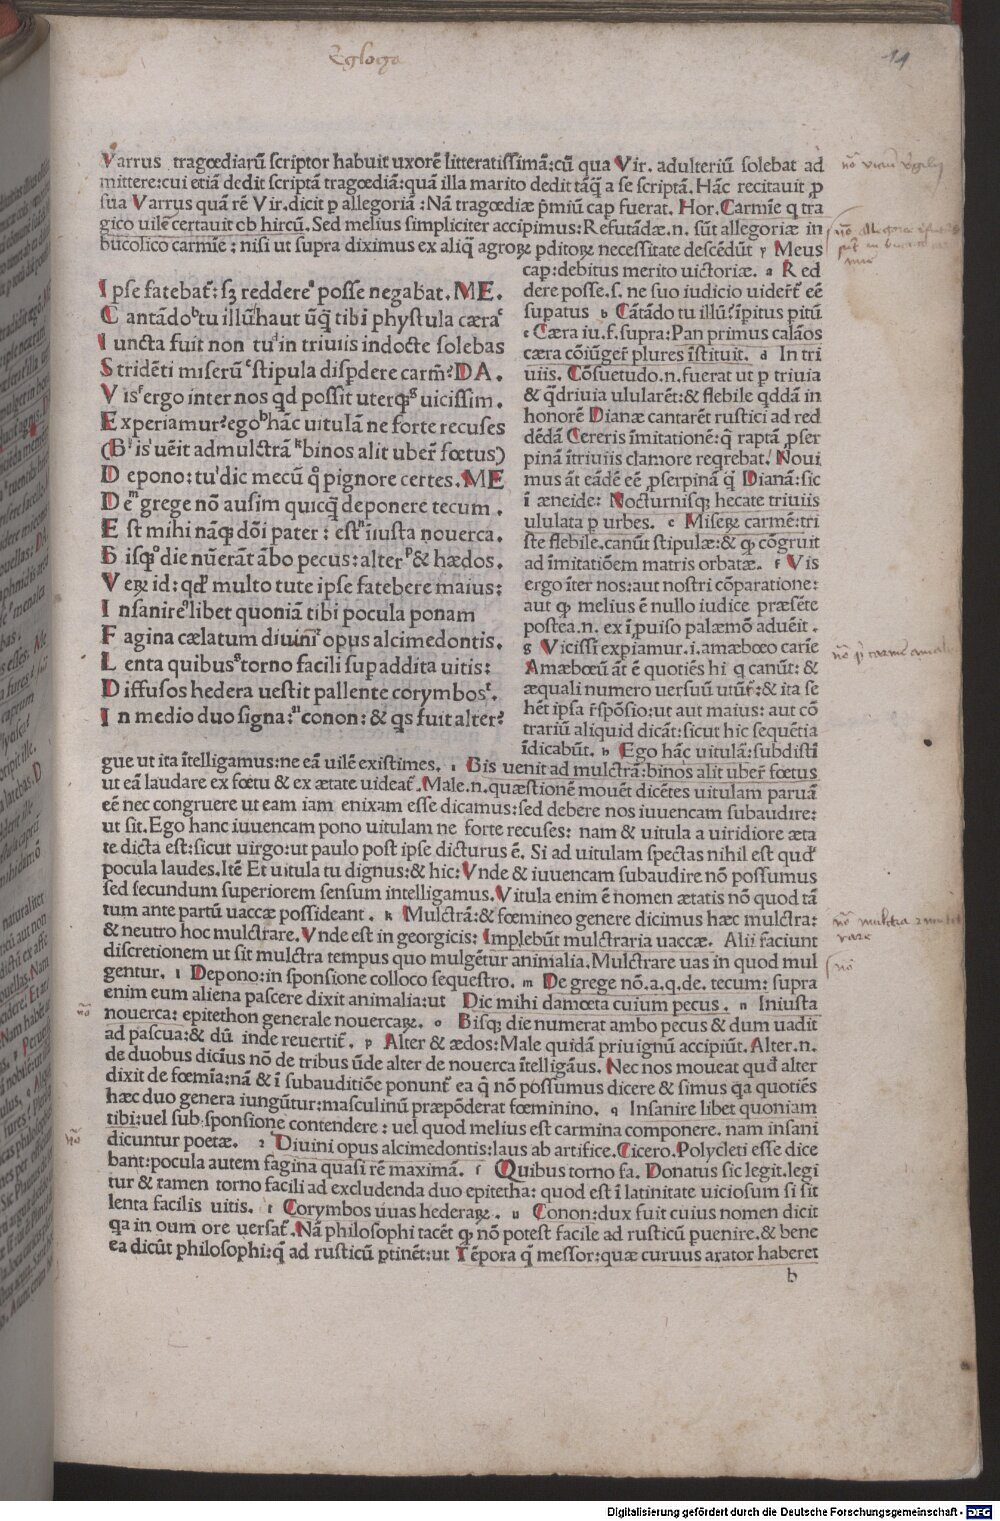 Egloga
11
Varrus tragœdiarū scriptor habuit uxorē litteratissimā:cū qua Vir. adulteriū solebat ad
mittere:cui etiā dedit scriptā tragœdiā:quā illa marito dedit tāq̄ a se scriptā. Hāc recitauit ꝑ
sua Varrus quā rē Vir.dicit ꝑ allegoriā : Nā tragœdiæ p̄miū cap fuerat. Hor. Carmīe q tra
gico uilē certauit ob hircū. Sed melius simpliciter accipimus: Refutādæ.n. sūt allegoriæ in
bucolico carmīe : nisi ut supra diximus ex aliq̄ agroꝝ ꝑditoꝝ necessitate descēdūt y Meus
cap:debitus merito uictoriæ. a Red
dere posse.s. ne suo iudicio uidert̄ eē
supatus b Cātādo tu illū:īpitus pitū
c Cæra iu.f.supra:Pan primus calāos
cæra cōiūgeŕ plures īstituit. d In tri
uiis. Cōsuetudo.n.fuerat ut ꝑ triuia
& q̄driuia ulularēt:& flebile qddā in
honorē Dianæ cantarēt rustici ad red
dēdā Cereris īmitationē:q̄ raptā ꝓser
pinā ītriuiis clamore reqrebat. Noui
mus āt eādē eē ꝓserpinā q̄ Dianā:sic
ī æneide: Nocturnisqꝫ hecate triuiis
ululata ꝑ urbes. e Miseꝝ carmē:tri
ste flebile.canūt stipulæ:& qꝫ cōgruit
ad īmitatiōem matris orbatæ. f Vis
ergo īter nos:aut nostri cōparatione:
aut qꝫ melius ē nullo iudice præsēte
postea.n. ex īꝓuiso palæmō aduēit .
g Vicissī expiamur.i.amæbœo carīe
Amæbœū āt ē quotiēs hi q canūt: &
æquali numero uersuū utūt̄:& ita se
hēt ipsa r̄spōsio:ut aut maius: aut cō
trariū aliquid dicāt:sicut hic sequētia
īdicabūt. h Ego hāc uitulā:subdistī
Ipse fatebat̄: sꝫ reddere posse negabat. ME.
Cantādo tu illū haut ūq̄ tibi phystula cæra
Iuncta fuit non tu in triuiis indocte solebas
Stridēti miserū stipula disꝑdere carm̄? DA.
Vis ergo inter nos qd possit uterqꝫ uicissim.
Experiamur?ego hāc uitulā ne forte recuses
(Bis uēit ad mulctrā binos alit uberī fœtus)
Depono: tu dic mecū q̊ pignore certes. ME
De grege nō ausim quicq̄ deponere tecum .
Est mihi nāqꝫ dōi pater : est īiusta nouerca.
Bisqꝫ die nūerāt ābo pecus: alter & hædos.
Veꝝ id: qd multo tute ipse fatebere maius:
Insanire libet quoniā tibi pocula ponam
Fagina cælatum diuini opus alcimedontis.
Lenta quibus torno facili supaddita uitis:
Diffusos hedera uestit pallente corymbos.
In medio duo signa: conon: & qs fuit alter?
gue ut ita ītelligamus:ne eā uilē existimes. i Bis uenit ad mulctrā:binos alit uberī fœtus
ut eā laudare ex fœtu & ex ætate uideat̄. Male.n.quæstionē mouēt dicētes uitulam paruā
eē nec congruere ut eam iam enixam esse dicamus:sed debere nos iuuencam subaudire:
ut sit. Ego hanc iuuencam pono uitulam ne forte recuses: nam & uitula a uiridiore æta
te dicta est:sicut uirgo:ut paulo post ipse dicturus ē. Si ad uitulam spectas nihil est qud
pocula laudes. Itē Et uitula tu dignus:& hic: Vnde & iuuencam subaudire nō possumus
sed secundum superiorem sensum intelligamus. Vitula enim ē nomen ætatis nō quod tā
tum ante partū uaccæ possideant . k Mulctrā:& fœmineo genere dicimus hæc mulctra:
& neutro hoc mulctrare. Vnde est in georgicis: Implebūt mulctraria uaccæ. Alii faciunt
discretionem ut sit mulctra tempus quo mulgētur animalia. Mulctrare uas in quod mul
gentur. l Depono:in sponsione colloco sequestro. m De grege nō.a.q.de. tecum: supra
enim eum aliena pascere dixit animalia:ut Dic mihi damœta cuium pecus . n Iniusta
nouerca: epitethon generale nouercaꝝ. o Bisqꝫ die numerat ambo pecus & dum uadit
ad pascua:& dū inde reuertit̄. p Alter & ædos: Male quidā priuignū accipiūt. Alter.n.
de duobus dicius nō de tribus ūde alter de nouerca ītelligāus. Nec nos moueat qud alter
dixit de fœmīa:nā & ī subauditiōe ponunt̄ ea q̄ nō possumus dicere & simus qa quotiēs
hæc duo genera iungūtur:masculinū præpōderat fœminino. q Insanire libet quoniam
tibi:uel sub sponsione contendere : uel quod melius est carmina componere. nam insani
dicuntur poetæ. r Diuini opus alcimedontis:laus ab artifice. Cicero. Polycleti esse dice
bant:pocula autem fagina quasi rē maximā. s Quibus torno fa. Donatus sic legit.legi
tur & tamen torno facili ad excludenda duo epitetha: quod est ī latinitate uiciosum si sit
lenta facilis uitis. t Corymbos uuas hederaꝝ. u Conon:dux fuit cuius nomen dicit
qa in oum ore uersat̄. Nā philosophi tacēt qꝫ nō potest facile ad rusticū puenire.& bene
ea dicūt philosophi:q̄ ad rusticū ptinēt:ut Tēpora q̄ messor:quæ curuus arator haberet
b
Digitalisierung gefördert durch die Deutsche Forschungsgemeinschaft - DFG